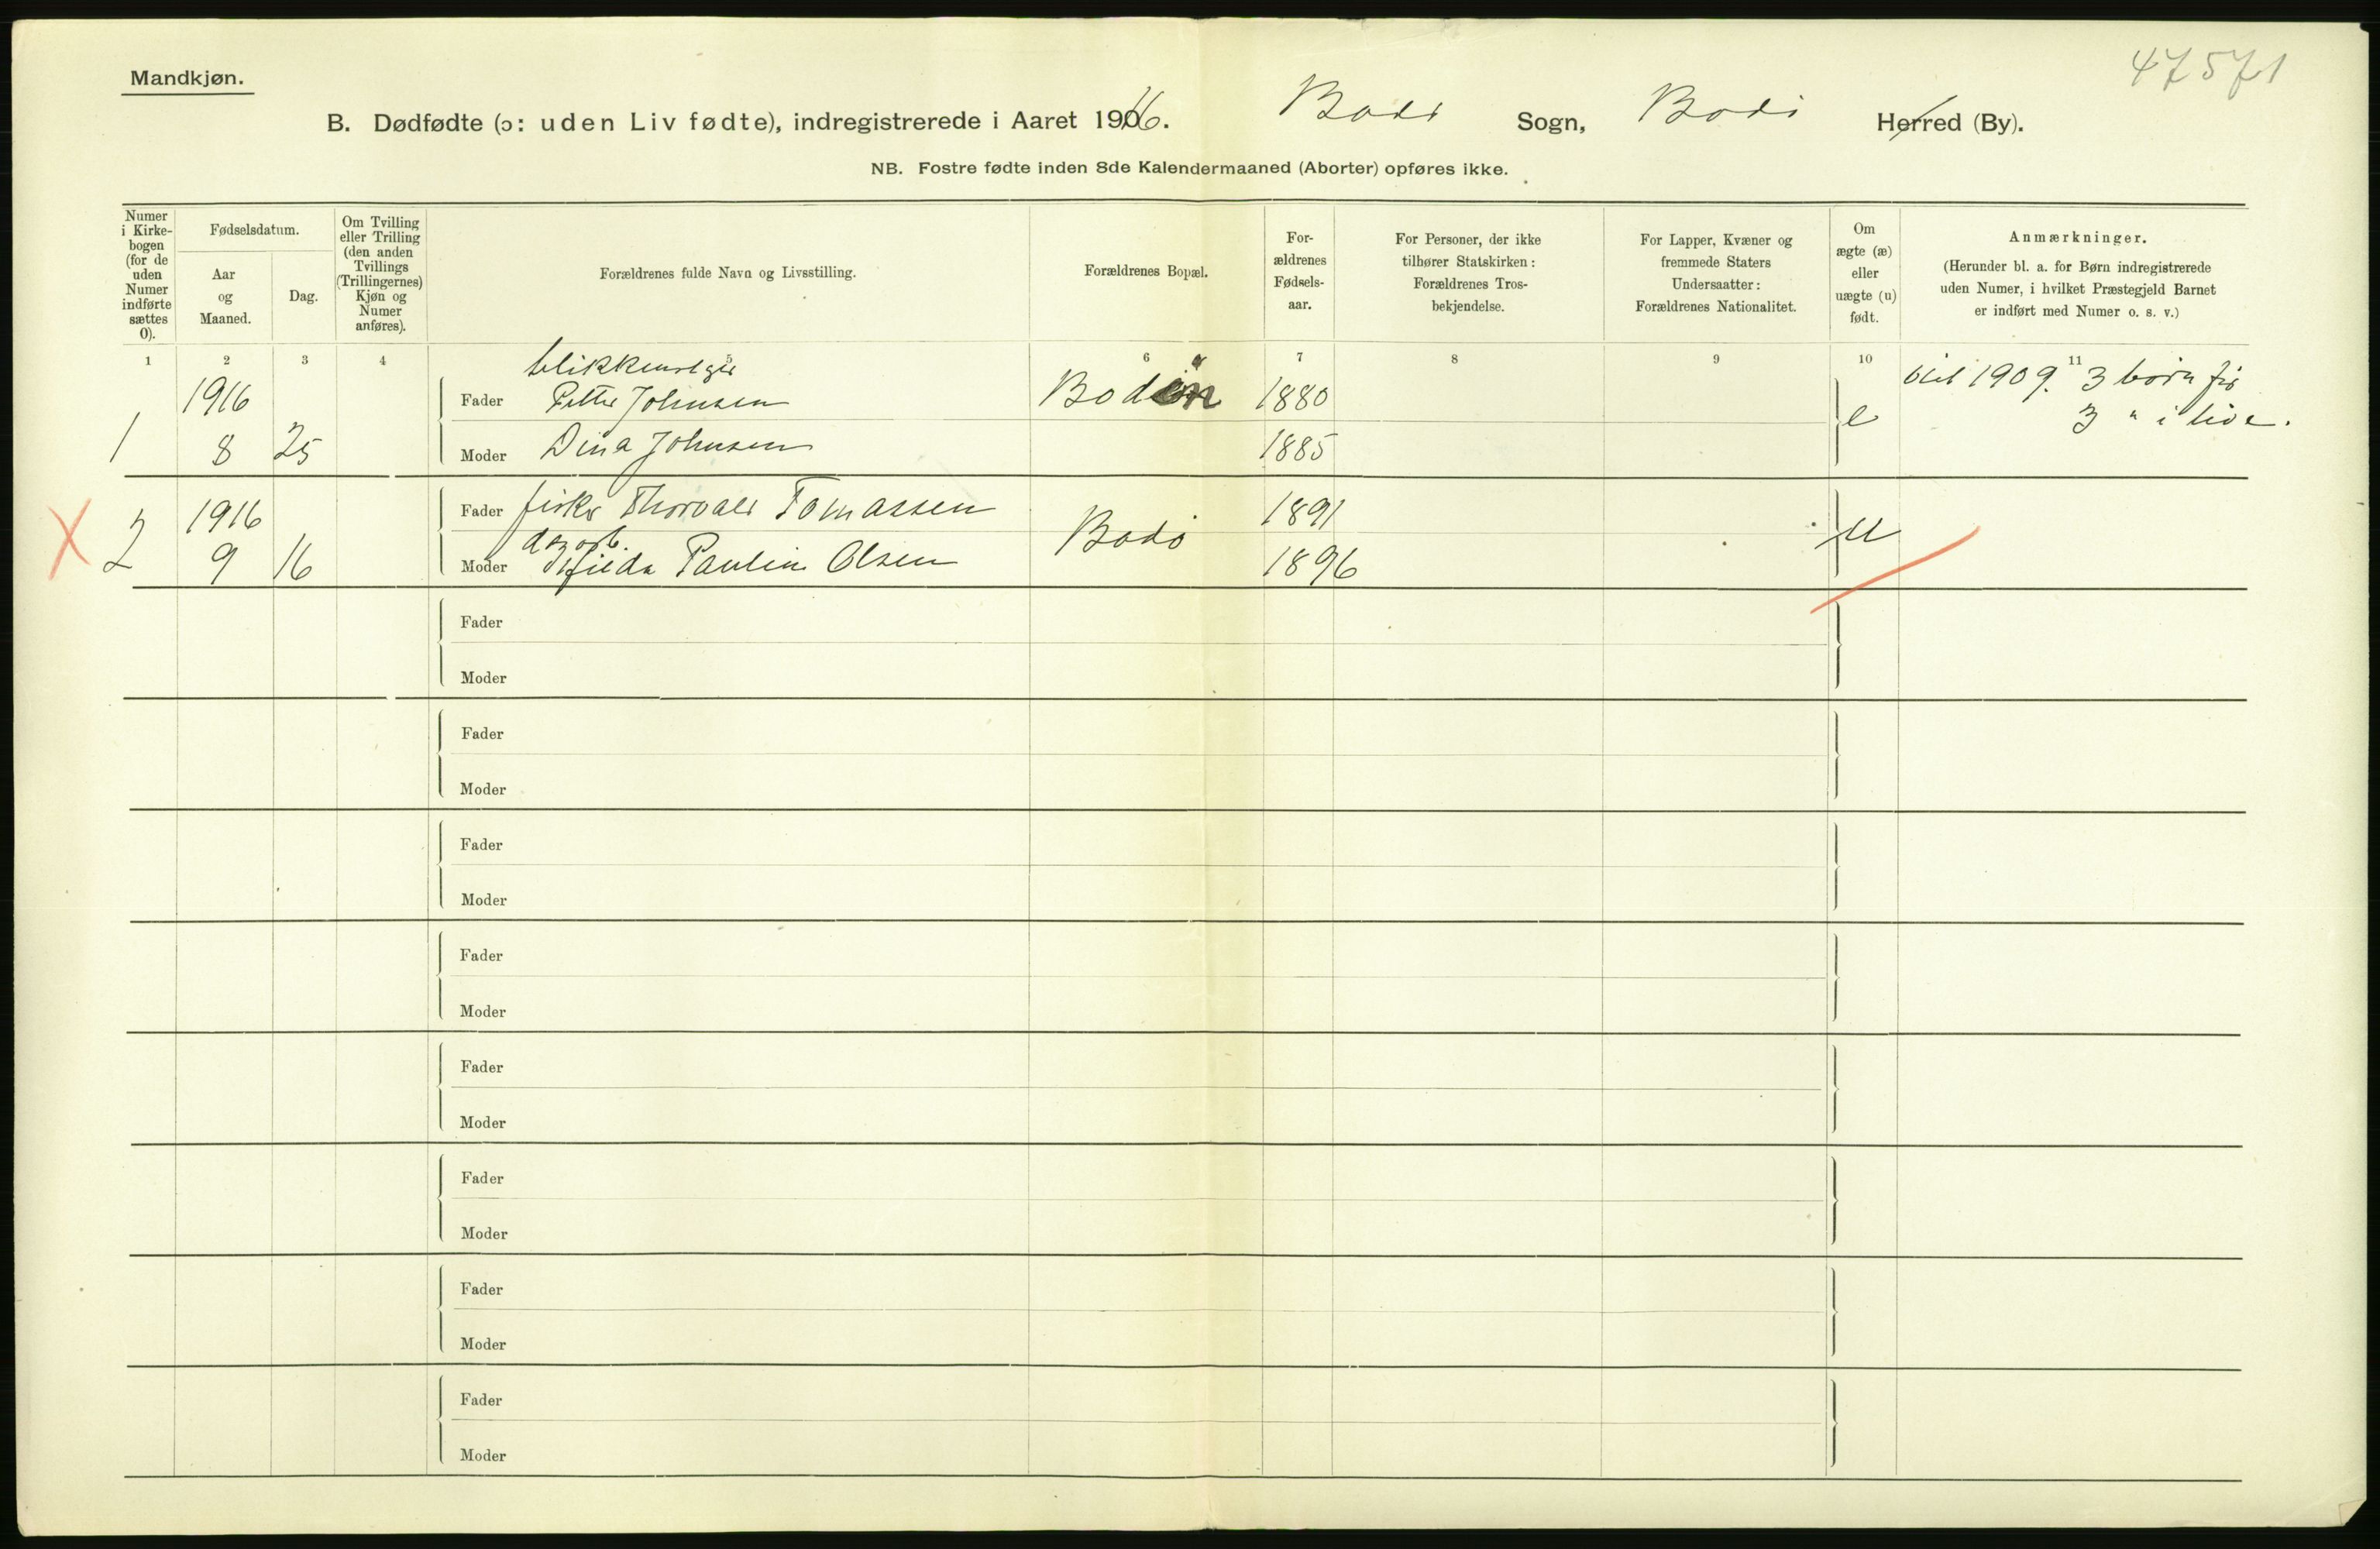 47571
Mandkjøn.
B. Dødfødte (ɔ: uden Liv fødte), indregistrerede i Aaret 1916. Bodø Sogn, Bodø Herred (By).
NB. Fostre fødte inden 8de Kalendermaaned (Aborter) opføres ikke.
Numer i Kirke-bogen (for de uden Numer indførte sættes 0).
Fødselsdatum.
Aar og Maaned.
Dag.
Om Tvilling eller Trilling (den anden Tvillings (Trillingernes) Kjøn og Numer anføres).
Forældrenes fulde Navn og Livsstilling.
Forældrenes Bopæl.
For-ældrenes Fødsels-aar.
For Personer, der ikke tilhører Statskirken: Forældrenes Tros-bekjendelse.
For Lapper, Kvæner og fremmede Staters Undersaatter: Forældrenes Nationalitet.
Om ægte (æ) eller uægte (u) født.
Anmærkninger.
(Herunder bl. a. for Børn indregistrerede uden Numer, i hvilket Præstegjeld Barnet er indført med Numer o. s. v.)
1 2 3 4 5 6 7 8 9 10 11
blikkenslager
1916 Fader Petter Johnsen Bodø 1880 viet 1909. 3 børn før
1 8 25 Moder Dina Johnsen 1885 e 3 " i live.
X 2 1916 Fader fisker Thorvald Tomassen Bodø 1891 u
dagarb.
9 16 Moder Paulin Olsen 1896
Fader
Moder
Fader
Moder
Fader
Moder
Fader
Moder
Fader
Moder
Fader
Moder
Fader
Moder
Fader
Moder